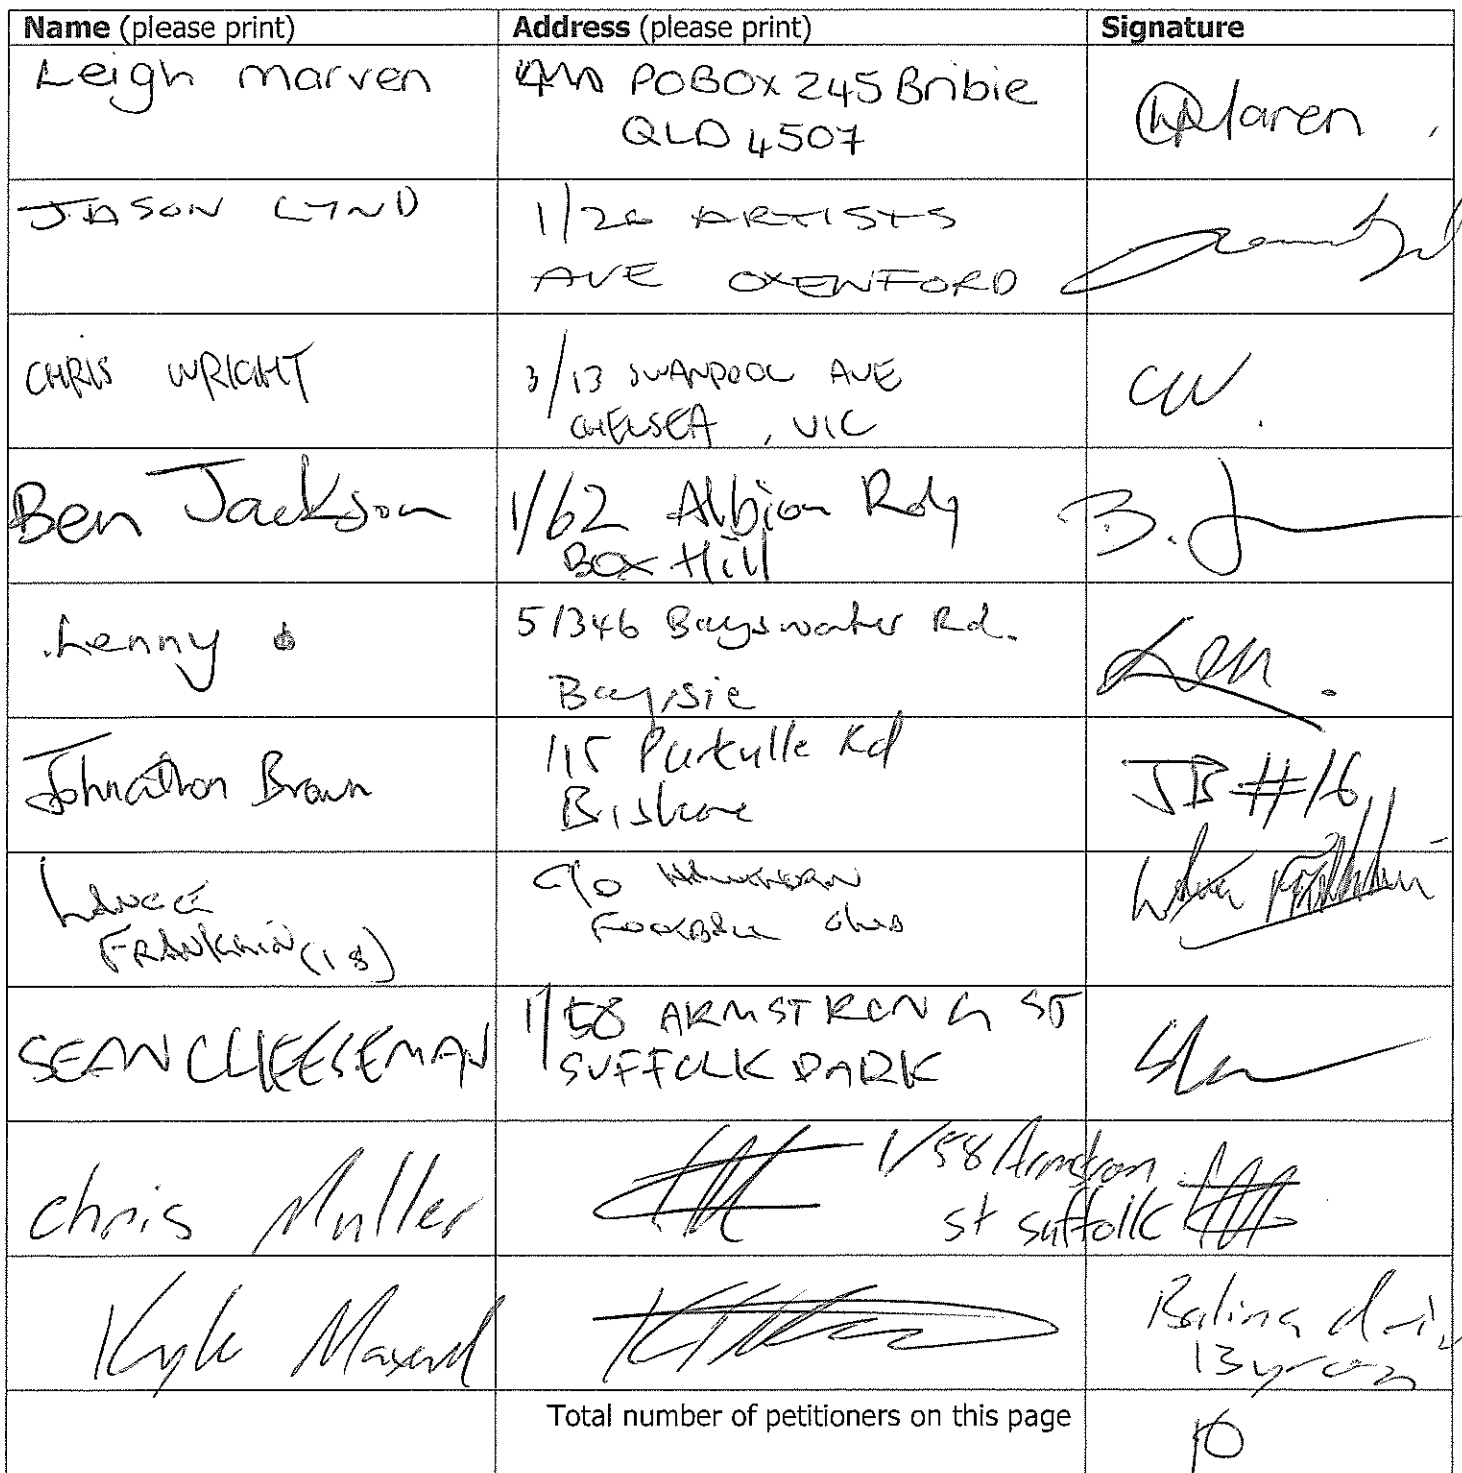 Name (please print) Address (please print) Signature
Leigh Marven POBOX 245 Bribie
QLD 4507
JASON LYND 1/26 ARTISTS
AVE OXENFORD
CHRIS WRIGHT 3/13 SWANPOOL AVE
CHELSEA, VIC CW.
Ben Jackson 1/62 Albion Rd
BOX Hill B. J
Lenny 5/346 Bayswater Rd.
Baysie Len.
Johnathon Brown 1/15 Rd
Brisbane JB #16
LANCE C/O HAWTHORN
FRANKLIN (18) FOOTBALL CLUB Lance Franklin
SEAN CHEESEMAN 1/58 ARMSTRONG ST
SUFFOLK PARK
Chris Muller 1/58 Armstron
st suffolk
Kyle Balina
Byron
Total number of petitioners on this page 10